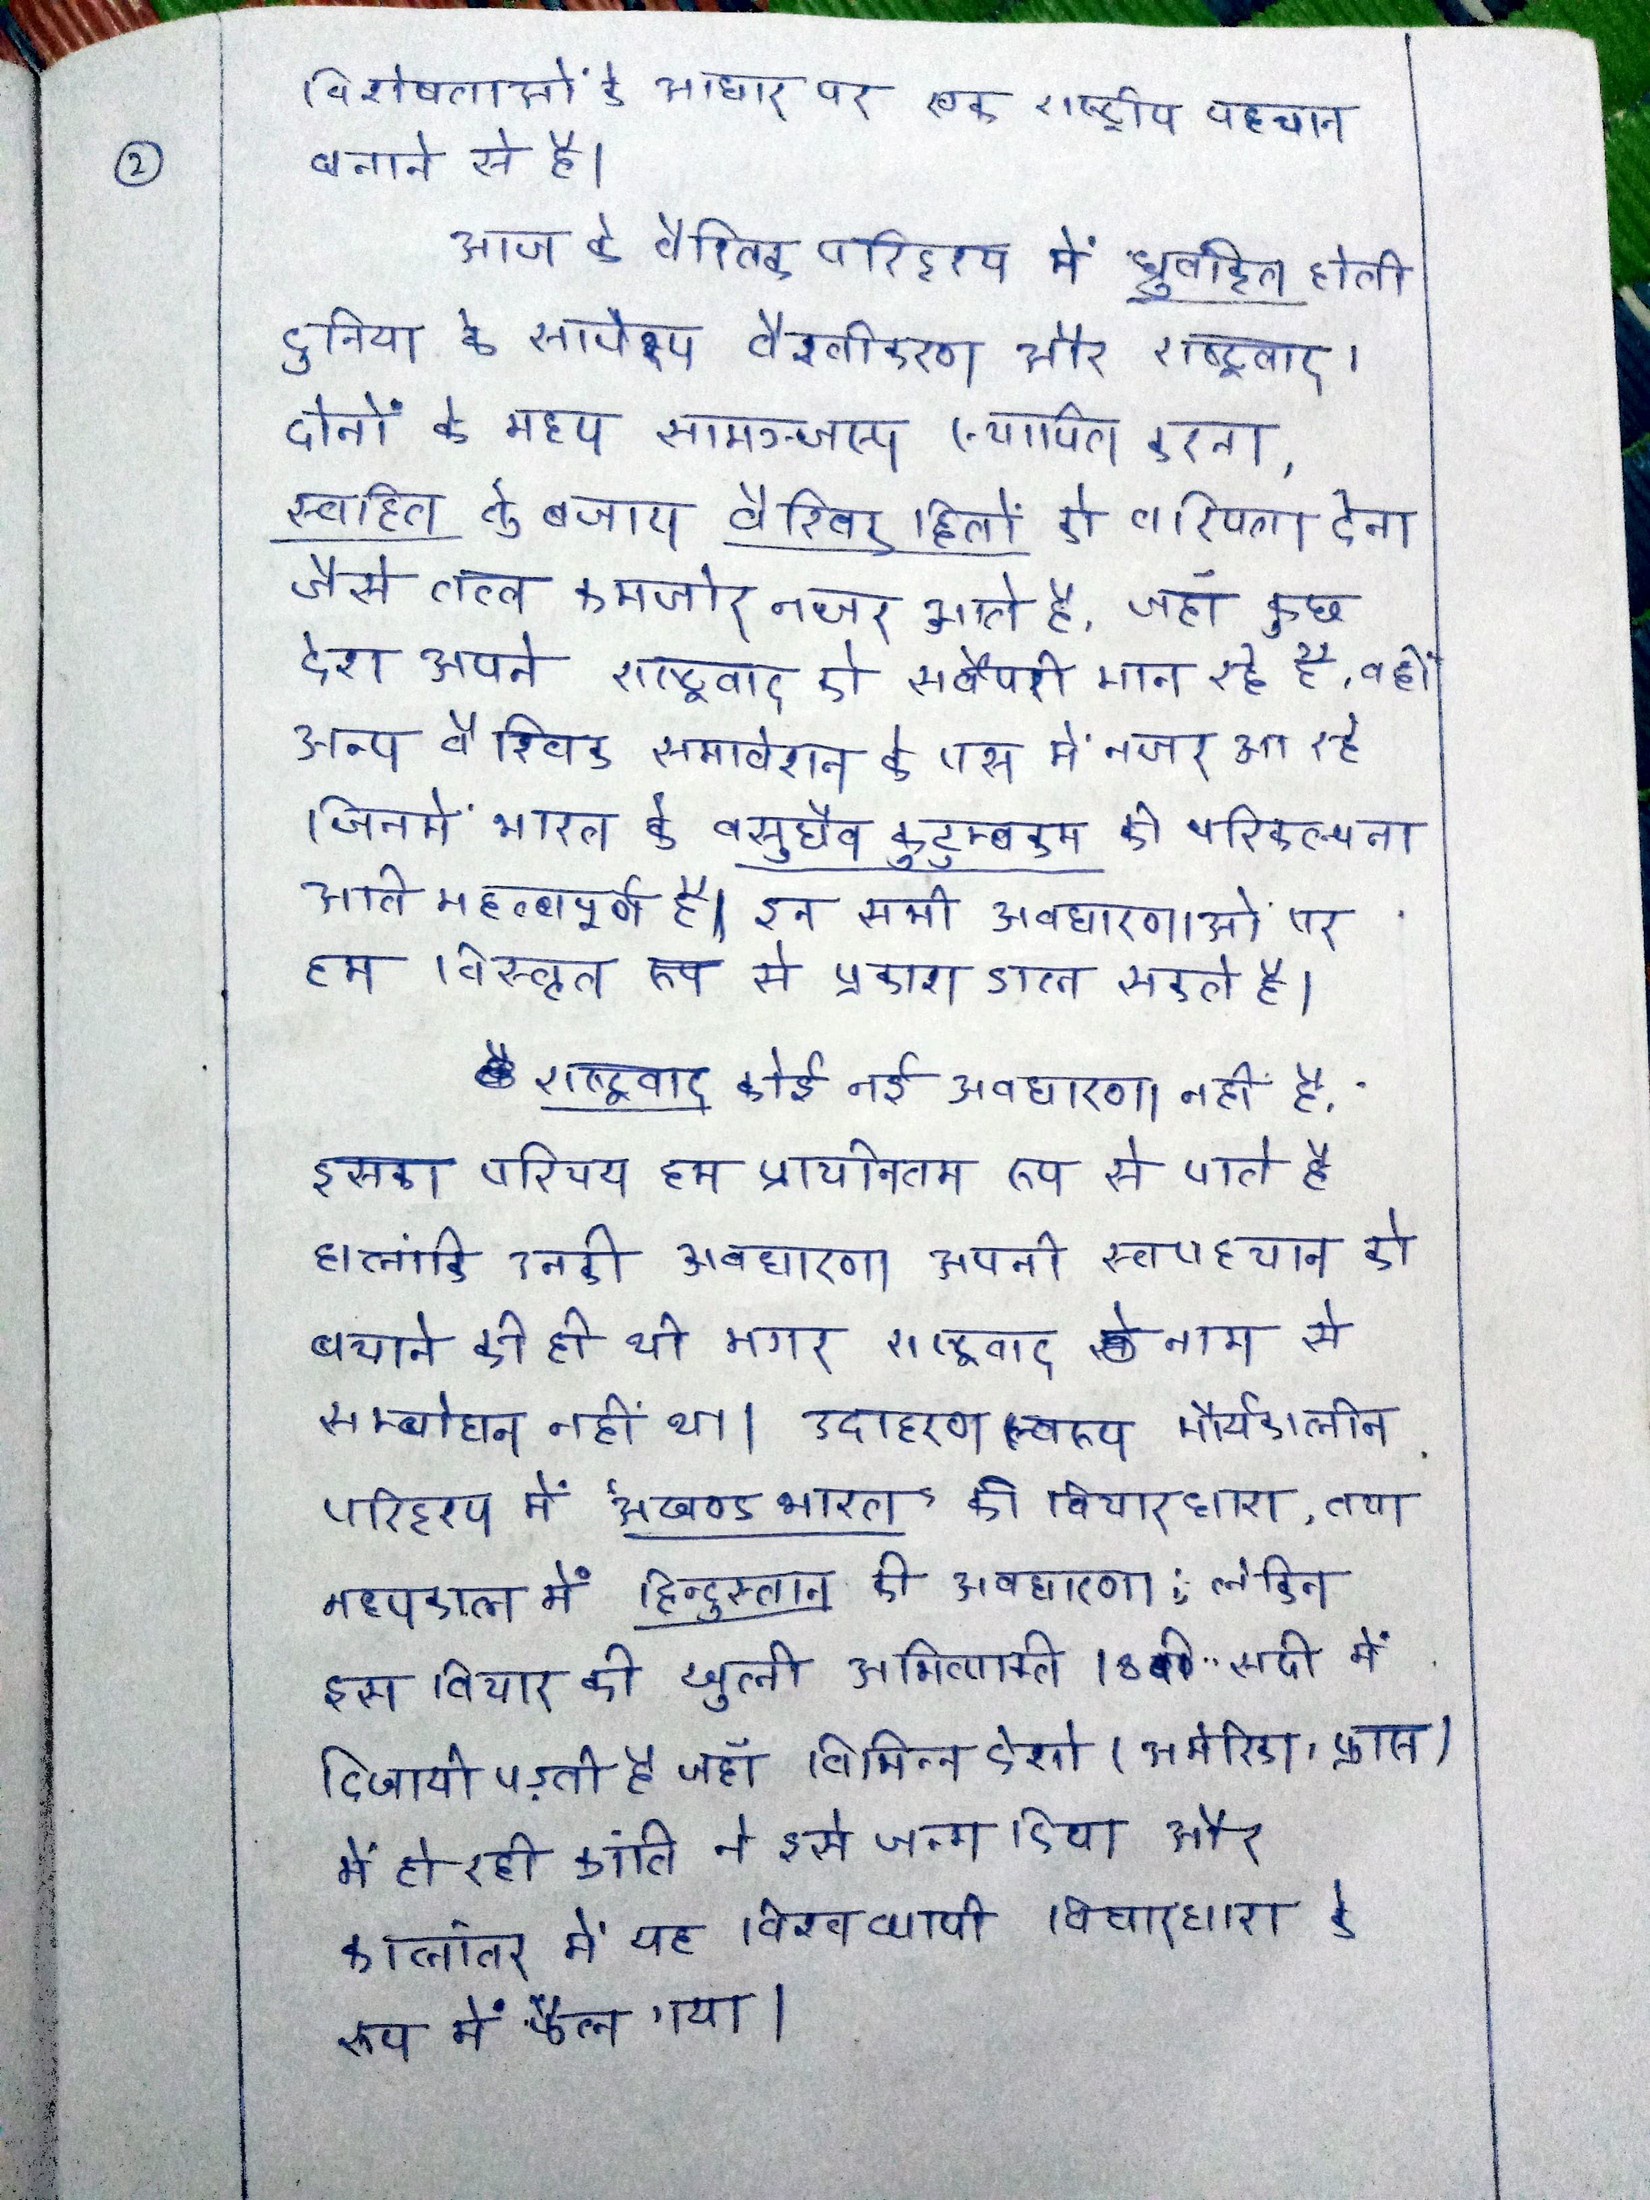 विशेषताओं के आधार पर एक राष्ट्रीय पहचान
②
बनाने से है।
आज के वैश्विक परिदृश्य में ध्रुवीकृत होती
दुनिया के सापेक्ष्य वैश्वीकरण और राष्ट्रवाद।
दोनों के मध्य सामञ्जस्य स्थापित करना,
स्वहित के बजाय वैश्विक हितों को वरियता देना
जैसे तत्व कमजोर नजर आते है, जहाँ कुछ
देश अपने राष्ट्रवाद को सर्वोपरी मान रहे है, वहीं
अन्य वैश्विक समावेशन के पक्ष में नजर आ रहे
जिनमें भारत के वसुधैव कुटुम्बकम की परिकल्पना
अति महत्वपूर्ण है। इन सभी अवधारणाओं पर
हम विस्तृत रूप से प्रकाश डाल सकते है।
राष्ट्रवाद कोई नई अवधारणा नहीं है,
इसका परिचय हम प्राचीनतम रूप से पाते है
हालांकि उनकी अवधारणा अपनी स्वपहचान को
बचाने की ही थी मगर राष्ट्रवाद के नाम से
सम्बोधन नहीं था। उदाहरण स्वरूप मौर्यकालीन
परिदृश्य में 'अखण्ड भारत' की विचारधारा, तथा
मध्यकाल में हिन्दुस्तान की अवधारणा; लेकिन
इस विचार की खुली अभिव्यक्ति 18वी सदी में
दिखायी पड़ती है जहाँ विभिन्न देशो (अमेरिका, फ्रांस)
में हो रही क्रांति ने इसे जन्म दिया और
कालांतर में यह विश्वव्यापी विचारधारा के
रूप में फैल गया।